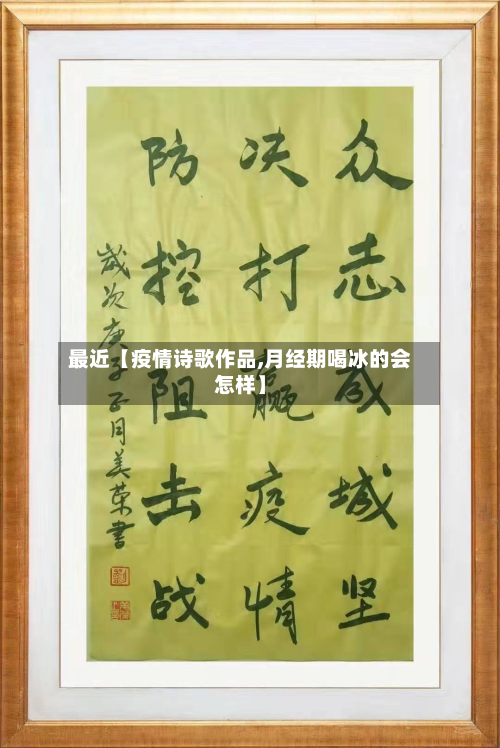 众志成城坚
决打赢疫情
防控阻击战
歲次庚子正月美荣書
最近【疫情诗歌作品,月经期喝冰的会
怎样】